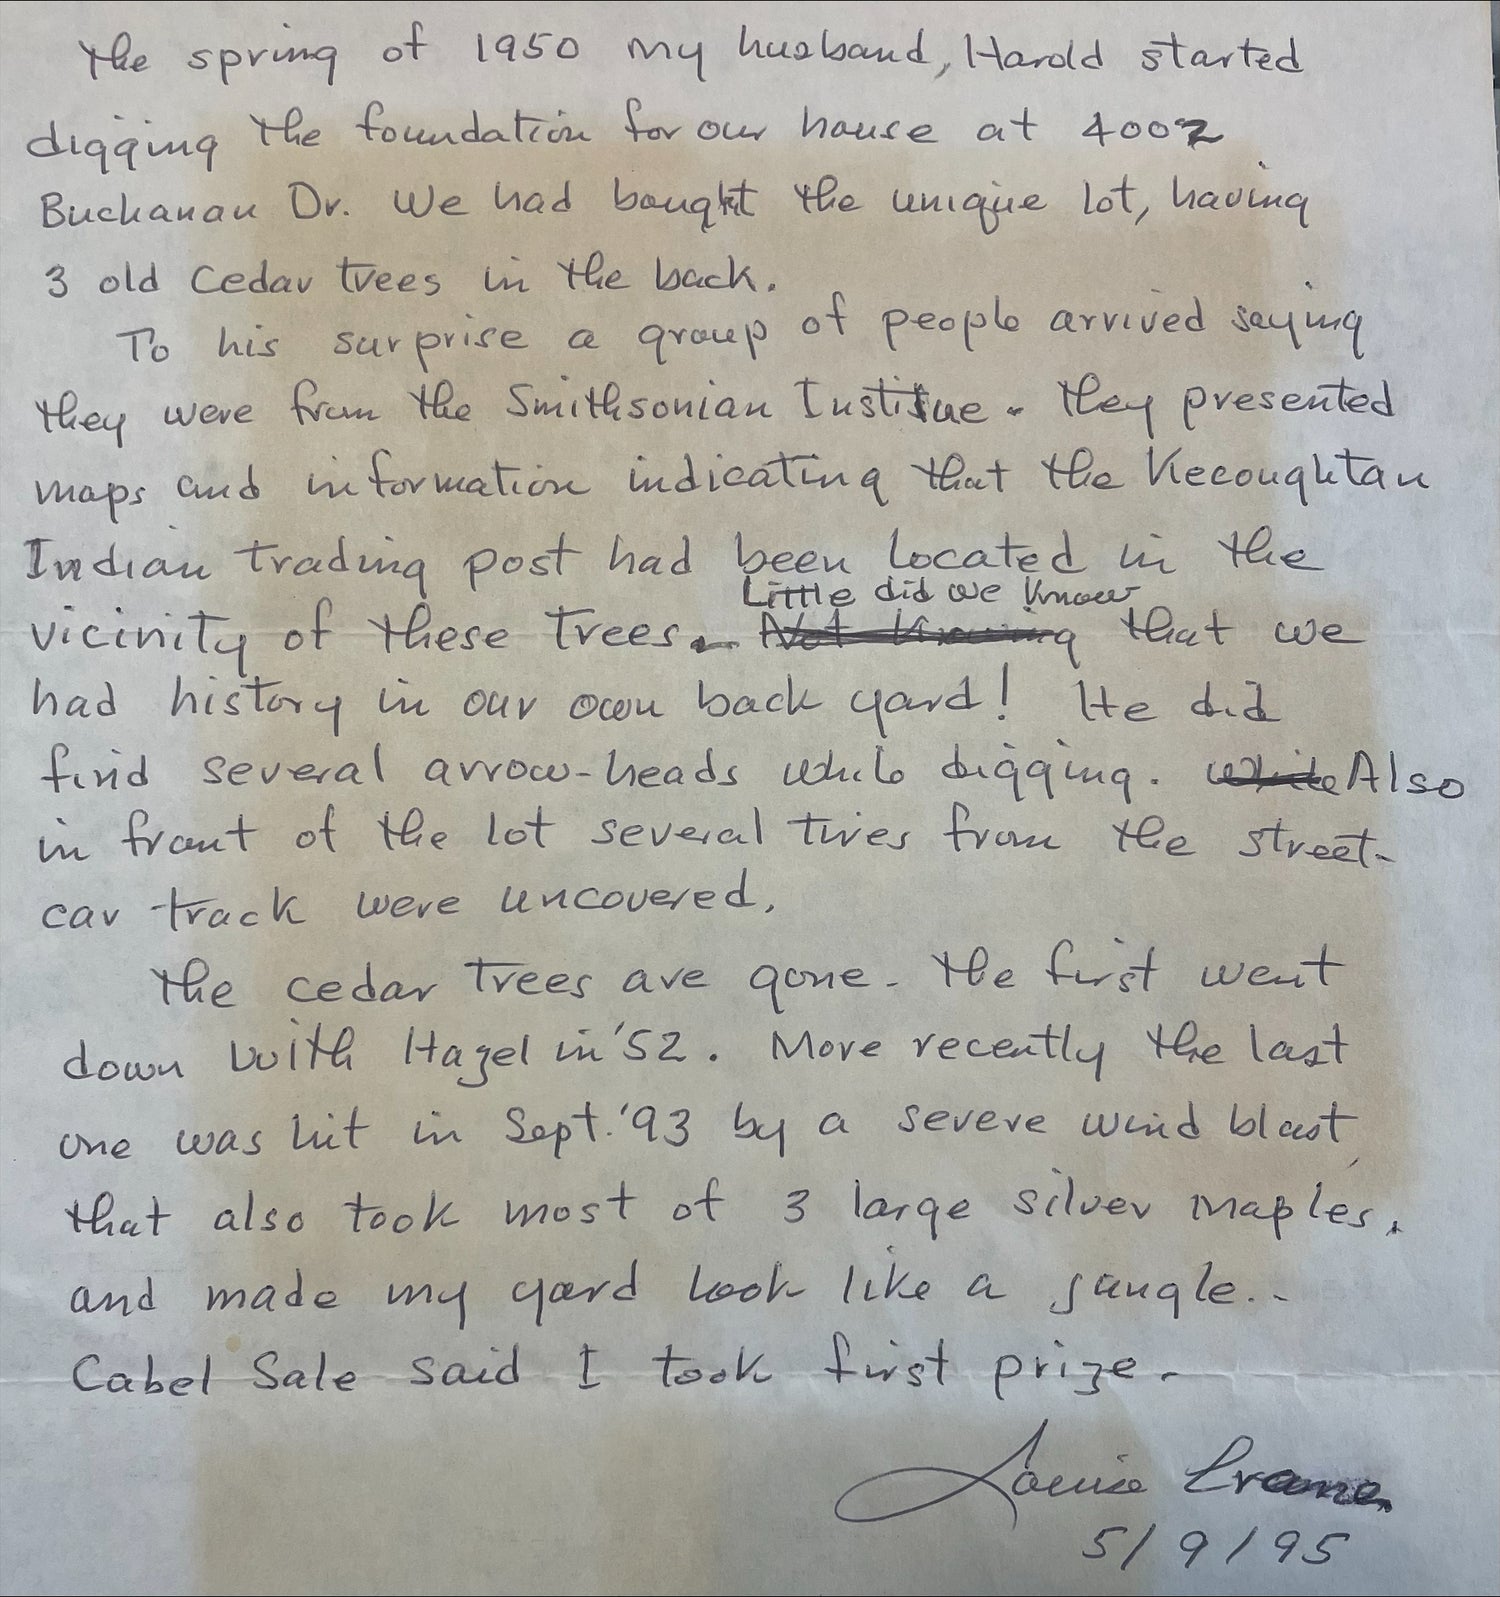 The spring of 1950 my husband, Harold started
digging the foundation for our house at 4002
Buchanan Dr. We had bought the unique lot, having
3 old Cedar trees in the back.
To his surprise a group of people arrived saying
they were from the Smithsonian Institue. They presented
maps and information indicating that the Kecoughtan
Indian trading post had been located in the
Little did we know
vicinity of these trees. Not Knowing that we
had history in our own back yard! He did
find several arrow-heads while digging. While Also
in front of the lot several tires from the street-
car track were uncovered.
The cedar trees are gone. The first went
down with Hazel in '52. More recently the last
one was hit in Sept. '93 by a severe wind blast,
that also took most of 3 large silver maples,
and made my yard look like a jungle..
Cabel Sale said I took first prize.
Louise Crane
5/9/95